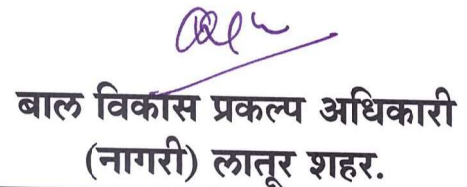 बाल विकास प्रकल्प अधिकारी
(नागरी) लातूर शहर.